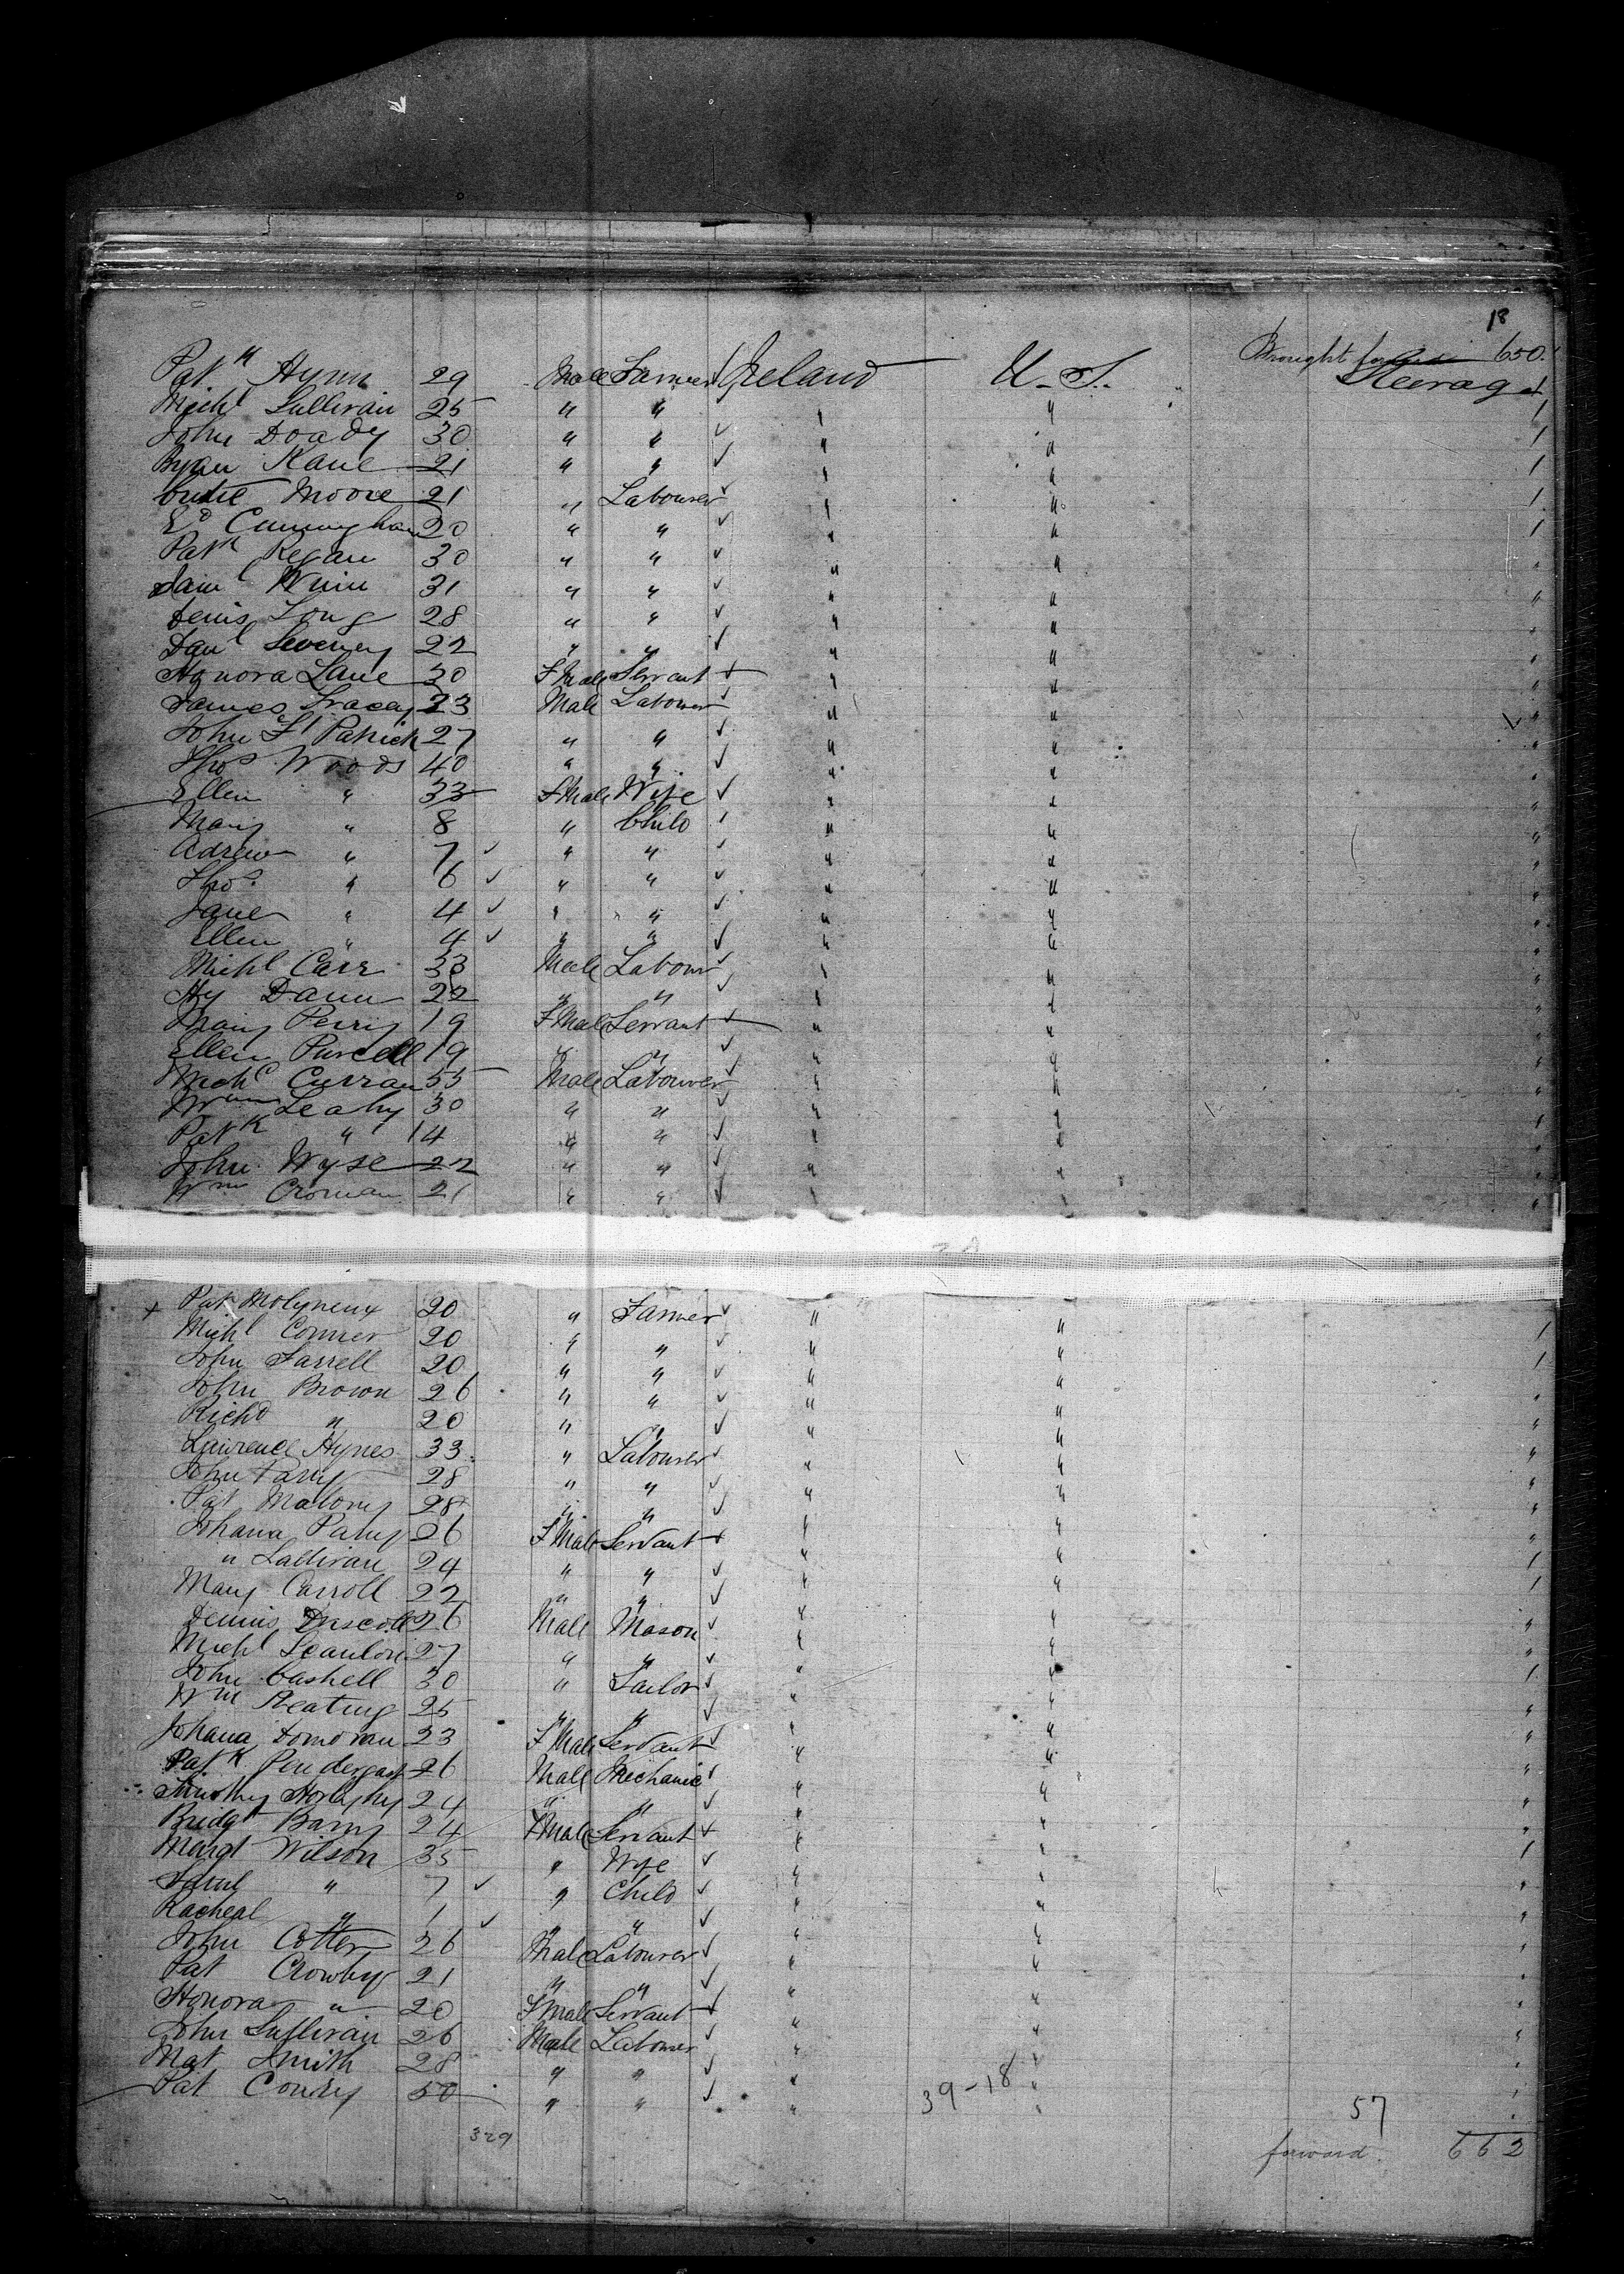 18
Brought forward 650
Patk Hynn 29 Male Farmer Ireland U.S. Steerage 1
Michl Sullivan 25 " " " " 1
John Doady 30 " " " " 1
Bryan Kane 21 " " " " 1
Moore 21 " Labourer " " 1
Ed Cunningham 20 " " " " 1
Patk Regan 30 " " " " "
Saml Winn 31 " " " " "
Denis Long 28 " " " " "
Danl Sweeney 22 " " " " "
Honora Lane 30 F Male Servant " " "
James Tracey 23 Male Labourer " " "
John Ft Patrick 27 " " " " "
Thos Woods 40 " " " " "
Ellen " 33 F Male Wife " " "
Mary " 8 " Child " " "
Adrew " 7 " " " " "
Thos " 6 " " " " "
Jane " 4 " " " " "
Ellen " 4 " " " " "
Michl Carr 33 Male Labour " " "
Hy Dann 22 " " " " "
Mary Perry 19 F Male Servant " " "
Ellen Purcell 19 " " " " "
Michl Curran 55 Male Labourer " " "
Wm Leahy 30 " " " " "
Patk " 14 " " " " "
John Wyse 22 " " " " "
Wm Croman 21 " " " " "
x Patk Molyneux 20 " Farmer " "
Michl Conner 20 " " " " 1
John Farrell 20 " " " " 1
John Brown 26 " " " " "
Richd " 20 " " " " "
Lawrence Hynes 33 " Labourer " " "
John Parry 28 " " " " "
Pat Malony 28 " " " " "
Johana Parry 26 F Male Servant " " "
" Sullivan 24 " " " " 1
Mary Carroll 22 " " " " 1
Dennis Driscoll 26 Male Mason " " "
Michl Scanlon 27 " " " " "
John Cashell 30 " Tailor " " 1
Wm Keating 25 " " " " "
Johana Donovan 23 F Male Servant " " "
Patk Pendergast 26 Male Mechanic " " "
Timothy 24 " " " " "
Bridgt Barry 24 F Male Servant " " "
Margt Wilson 35 " Wife " " 1
Saml " 7 " Child " " "
Racheal " 1 " " " " "
John Cotter 26 Male Labourer " " "
Pat Crowley 21 " " " " "
Honora " 20 F Male Servant " " "
John Sullivan 26 Male Labourer " " "
Mat Smith 28 " " " " "
Pat Conry 50 " " " " "
39-18
57
329
forward 662